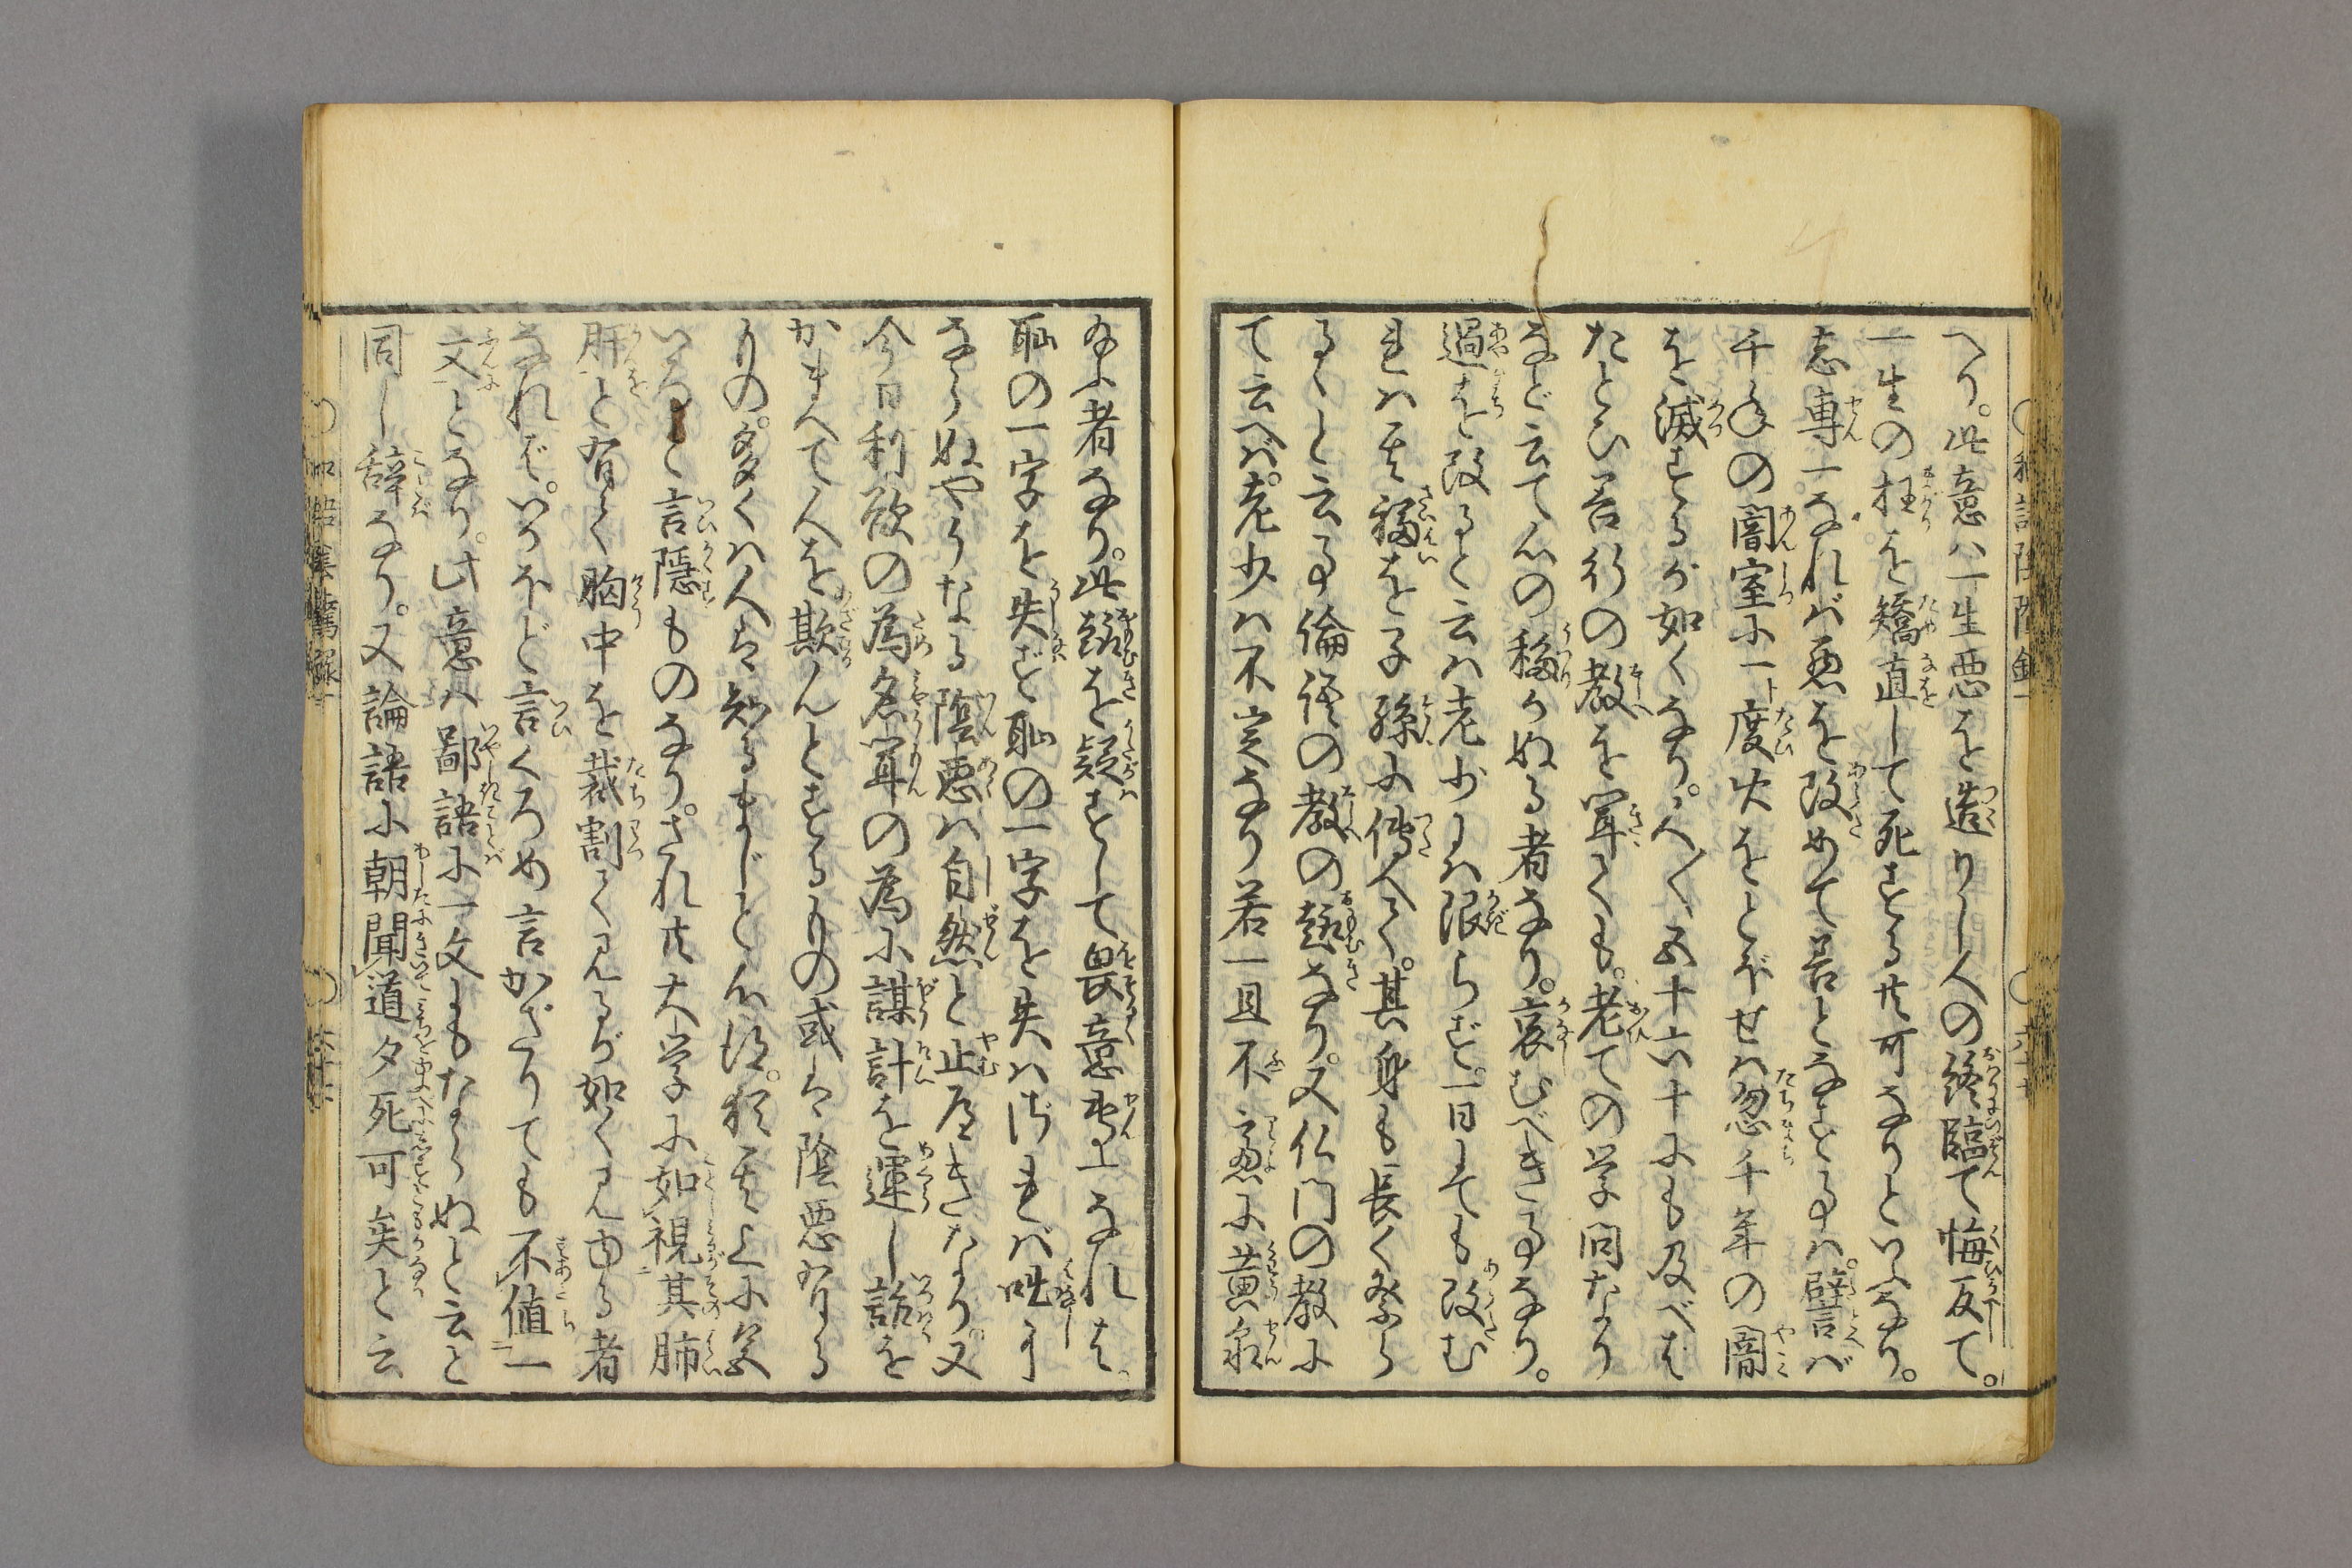 へり。此意ハ一生悪を造りし人の終臨て悔反て。
一生の枉を矯直して死する共可なりといふなり。
志專一なれバ悪を改めて善となする事ハ。譬バ
千年の闇室に一度火をとぼせハ忽千年の闇
を滅するが如くなり。人〱五十六十にも及べば
たとひ善行の教を聞ても。老ての学問なり
など云て心の移らぬる者なり。哀むべき事なり。
過を改ると云ハ老少にハ限らず。一日にても改む
れハ其福を子孫に傳へて。其身も長く祭ら
るゝと云事倫語の教の趣なり。又仏門の教に
て云へバ。老少ハ不定なり若一旦不慮に黄泉
ふ者なり。此趣を疑ずして畏意専一なれば。
恥の一字を失ず恥の一字を失ハざれバ
ならぬやうなる陰悪ハ自然と止度きなり。又
今日利欲の為名聞の為に謀計を運し話を
かまへて人を欺んとするもの或は陰悪有る
もの。多くハ人は知るまじと心得。
いろ〱言隠ものなり。され共大学に如視其肺
肝と有て胸中を裁割て見るが如く見ゆる者
なれば。いかほど言くろめ言かざりても不値一
文となり。此意ハ鄙語に一文にもならぬと云と
同し辞なり。又論語に朝聞道夕死可矣と云